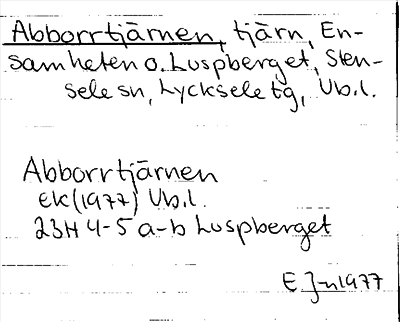 Abborrtjärnen, tjärn, En-
samheten o. Luspberget, Sten-
sele sn, Lycksele tg, Vb.l.
Abborrtjärnen
EK (1977) Vb.l.
23H 4-5 a-b Luspberget
E J-n 1977